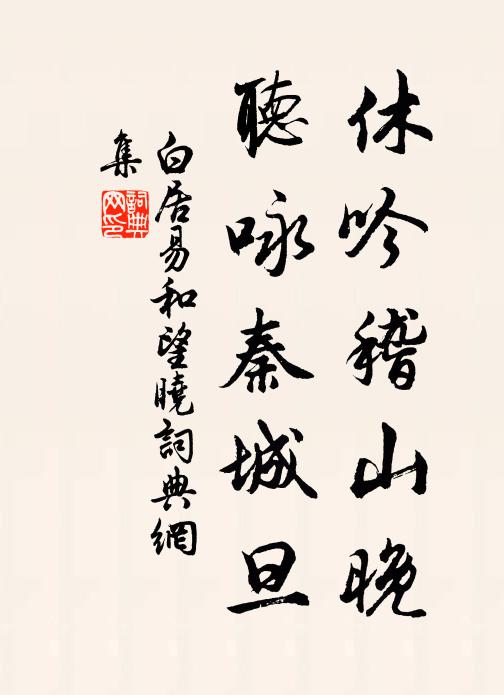 休吟稽山晚
聽咏秦城旦
白居易和望曉詞典網
集
詞典
网印